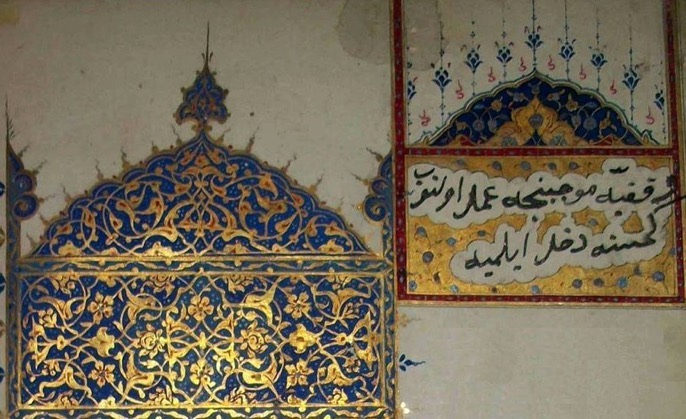 وقفيّه موجبنجه عمل اولنوب
كمسنه دخل ايلميه